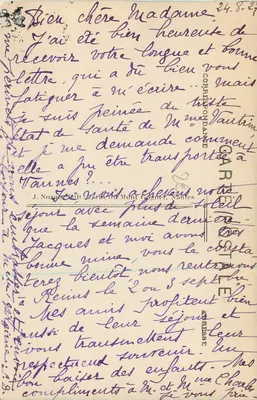 24.8.27
Bien chère Madame
J'ai été bien heureuse de
recevoir votre longue et bonne
lettre, qui a dû bien vous
fatiguer à m'écrire... mais
je suis peinée du triste
état de santé de Mme Vautrin
et je me demande comment
elle a pu être transportée à
Vannes ?...
Ici nous achevons notre
séjour avec plus de soleil
que la semaine dernière
Jacques et moi avons
bonne mine, vous le consta
terez bientôt nous rentrerons
Rennes le 2 ou 3 septem
Mes amis profitent bien
aussi de leur séjour et
vous transmettent leur
respectueux souvenir. Un
bon baiser des enfants. Mes
compliments à M. et Mme
CARTE POSTALE
CORRESPONDANCE
ADRESSE